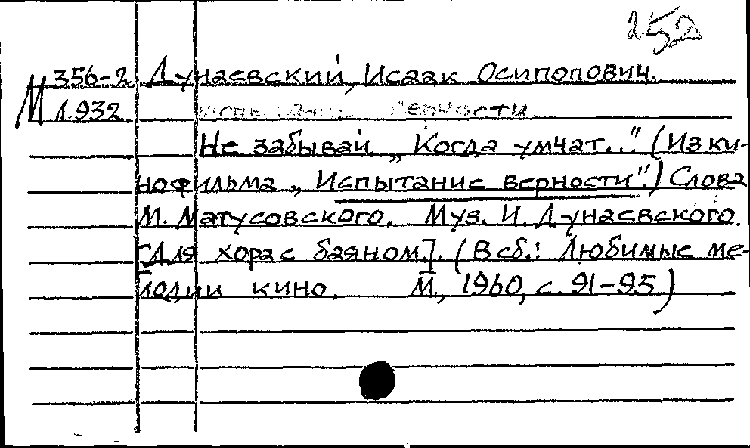 252
М 356-2 Дунаевский, Исаак Осипопович.
1.932 Испытание верности
Не забывай „Когда умчат..." (Из ки-
нофильма „Испытание верности".) Слова
М. Матусовского. Муз. И. Дунаевского.
[Для хора с баяном]. (В сб.: Любимые ме-
лодии кино. М., 1960, с. 91-95)